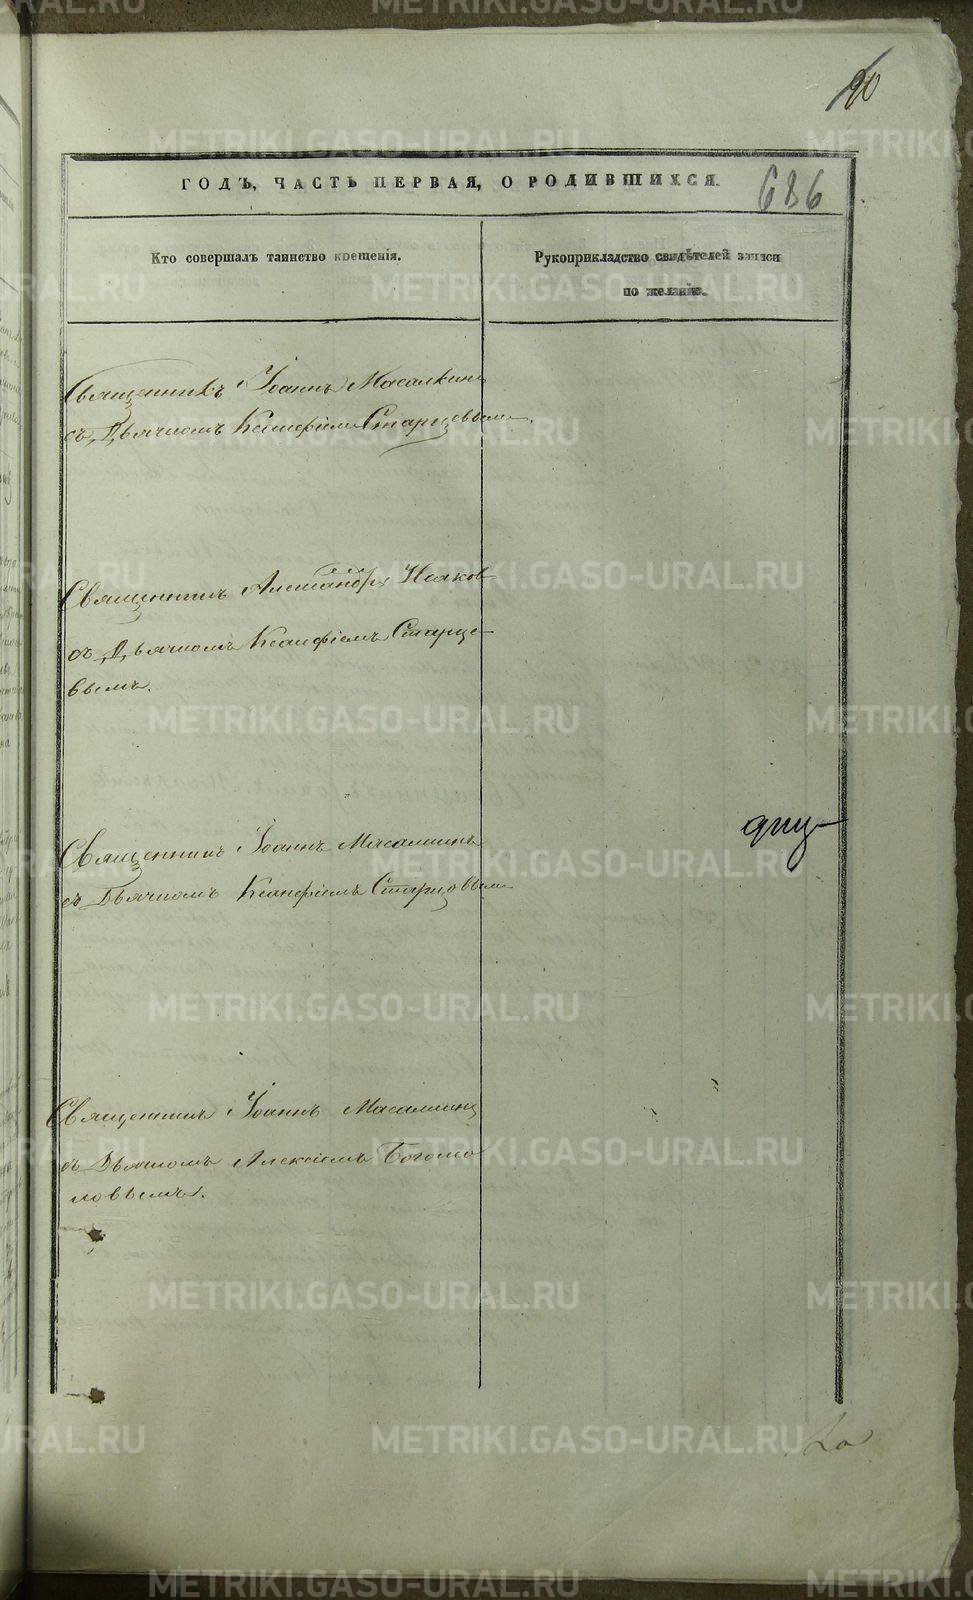 90
ГОДЪ, ЧАСТЬ ПЕРВАЯ, О РОДИВШИХСЯ.
686
Кто совершалъ таинство крещенія.
Рукоприкладство свидѣтелей записи
по желанію.
Священникъ Іоаннъ Масалкинъ
съ Дьячкомъ Ксанфіемъ Старцевымъ.
Священникъ Александръ Исаковъ
съ Дьячкомъ Ксанфіемъ Старце-
вымъ.
Священникъ Іоаннъ Масалкинъ
съ Дьячкомъ Ксанфіемъ Старцовымъ
Священникъ Іоаннъ Масалкинъ
съ Дьячкомъ Алексіемъ Богомо
ловымъ.
METRIKI.GASO-URAL.RU